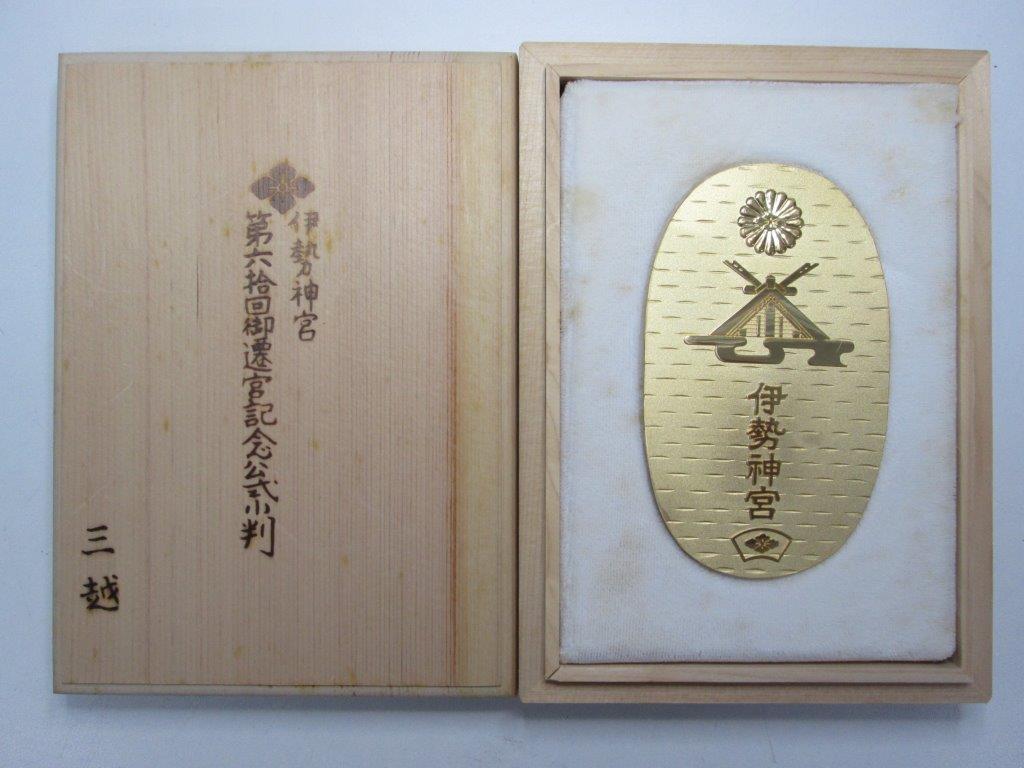 伊勢神宮
第六拾回御遷宮記念公式小判
三越
伊勢神宮